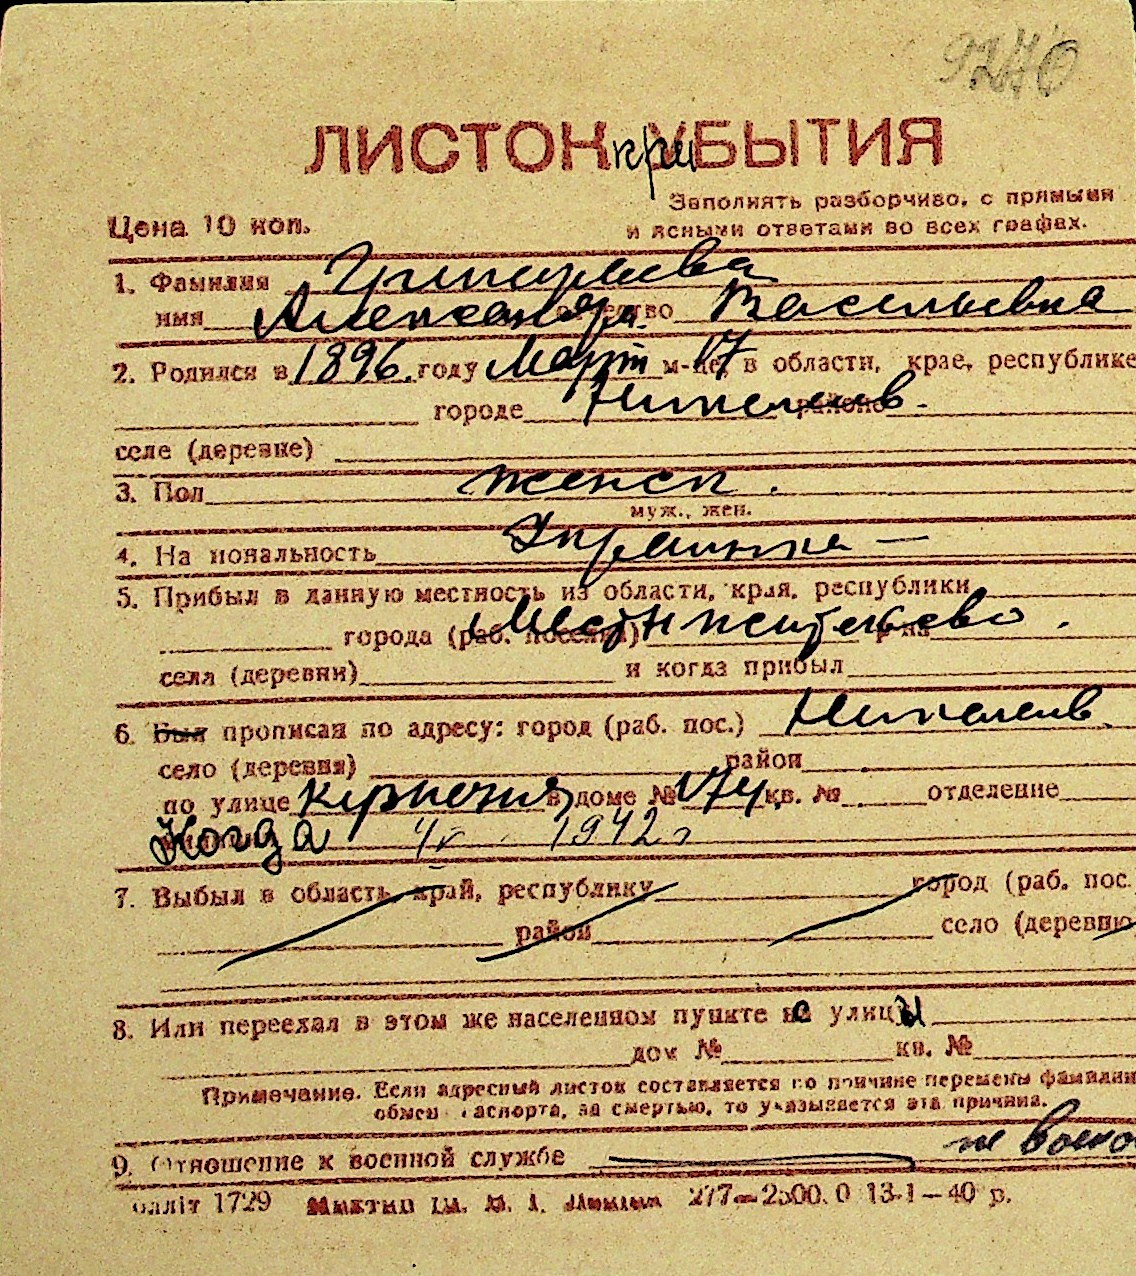 9270
ЛИСТОК при УБЫТИЯ
Заполнять разборчиво, с прямыми
Цена 10 коп.
и ясными ответами во всех графах.
1. Фамилия
имя Александра отчество Васильевна
2. Родился в 1896 году Март м-це 17 в области, крае, республике
городе Николаев районе
селе (деревне)
3. Пол женск.
муж., жен.
4. На иональность Украинка —
5. Прибыл в данную местность из области, края, республики
города (раб. поселка) Местн жительство р-на
села (деревни) и когда прибыл
6. Был прописан по адресу: город (раб. пос.) Николаев
село (деревня) район
по улице в доме № 174 кв. № отделение
Когда 1942 г
7. Выбыл в область край, республику город (раб. пос.
район село (деревню
8. Или переехал в этом же населенном пункте на улицы
дом № кв. №
Примечание. Если адресный листок составляется по причине перемены фамилии
обмен паспорта, за смертью, то указывается эта причина.
9. Отношение к военной службе не воено
олліт 1729 277—2500. 0 13-1—40 р.